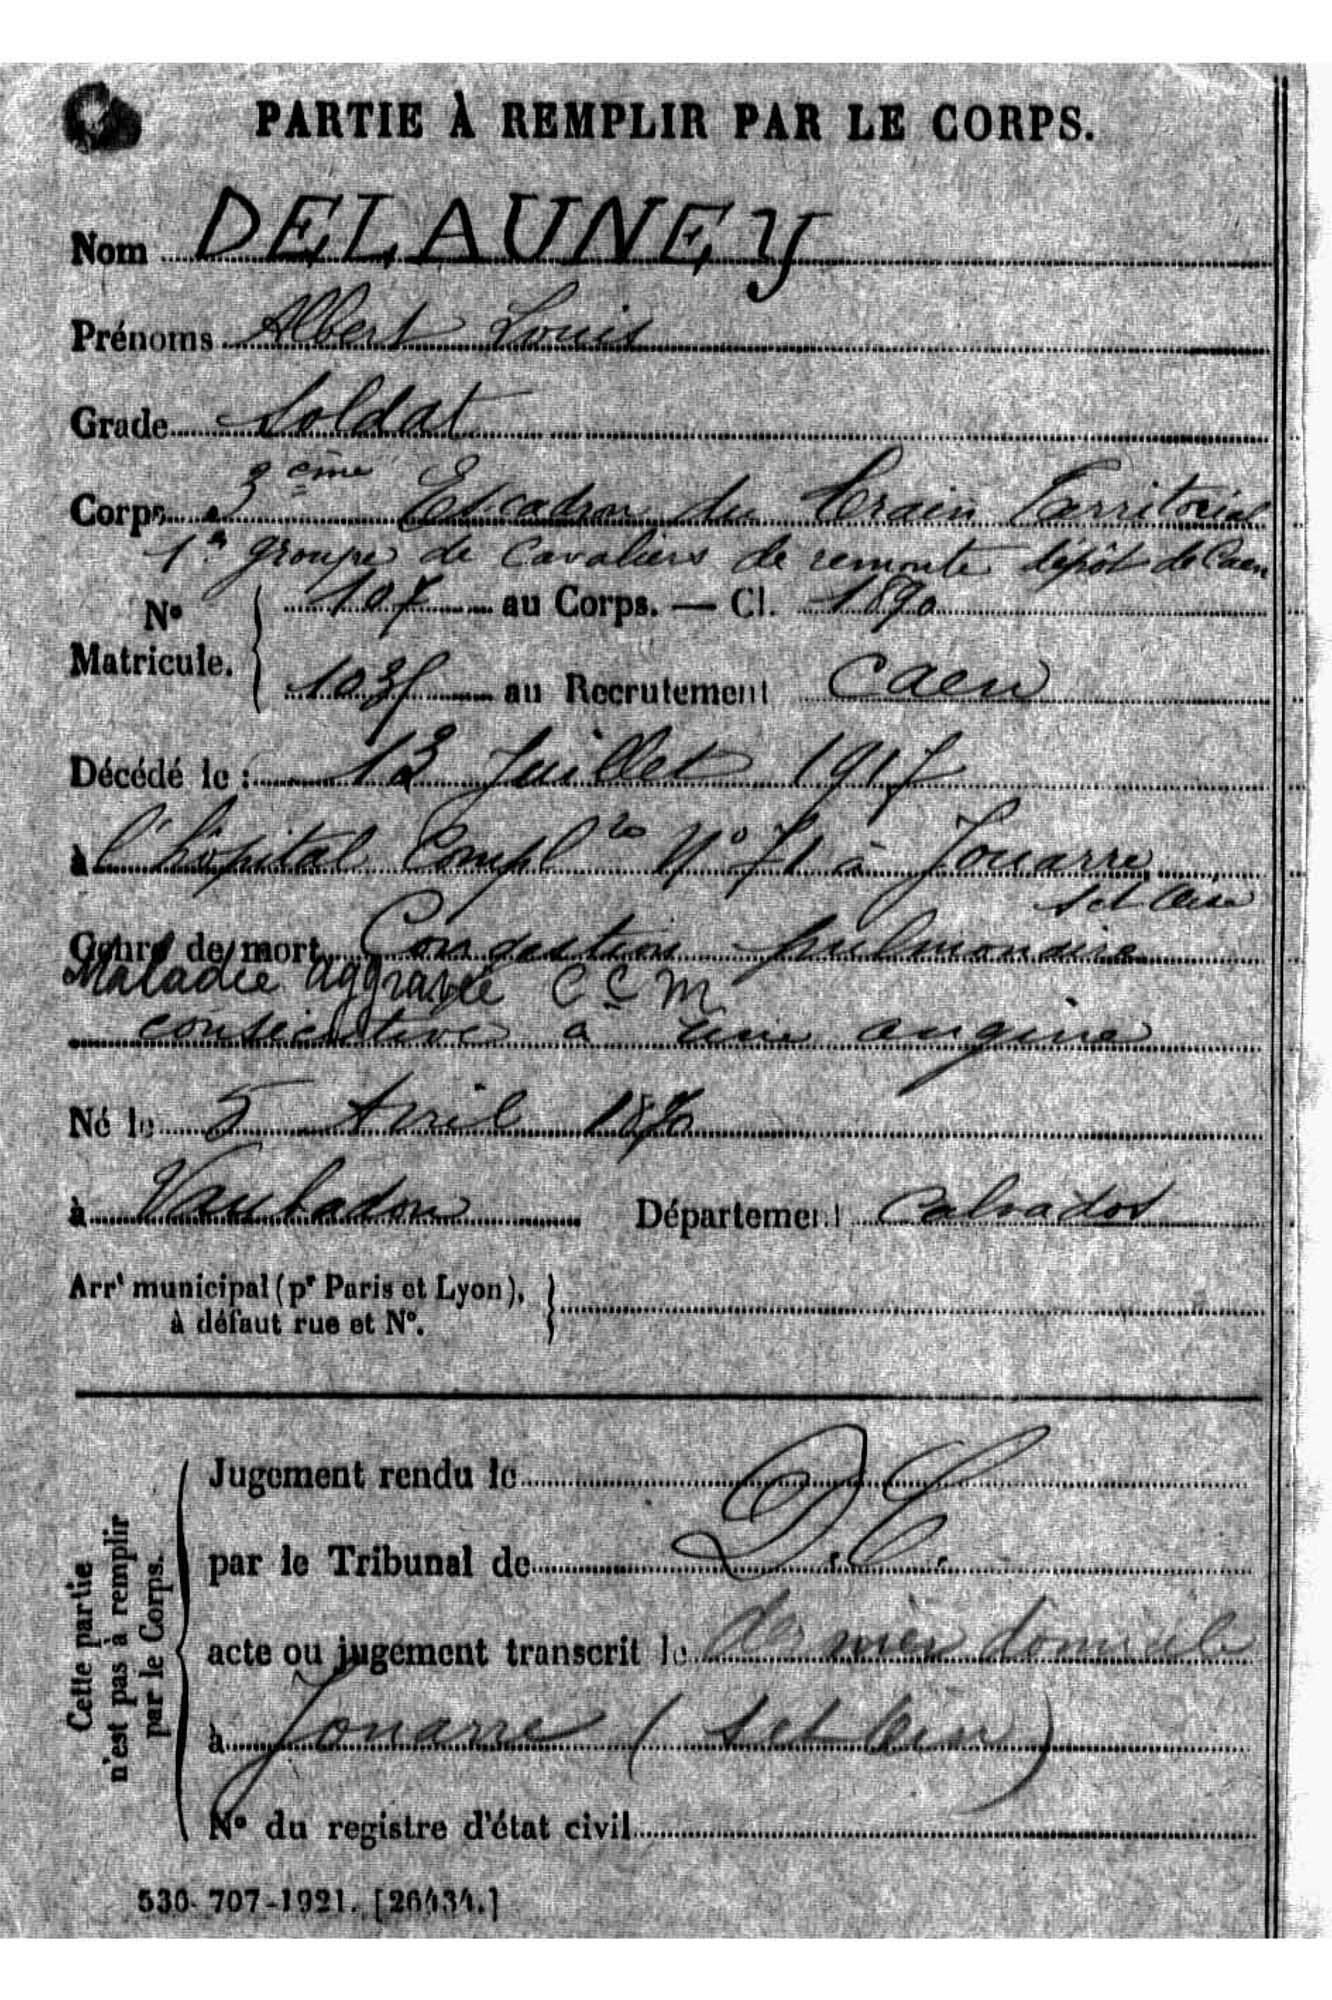 PARTIE À REMPLIR PAR LE CORPS.
Nom DELAUNEY
Prénoms Albert Louis
Grade Soldat
Corps 3ème Escadron du Train Territorial
1er groupe de Cavaliers de remonte dépôt de Caen
No Matricule. 107 au Corps. — Cl. 1890
1035 au Recrutement Caen
Décédé le : 13 Juillet 1917
à l'hôpital Complre No 71 à Jouarre
Set Oise
Genre de mort Congestion pulmonaire
Maladie aggravée C C M
consécutive à une angine
Né le 5 Avril 1870
à Vaubadon Département Calvados
Arrt municipal (pr Paris et Lyon),
à défaut rue et No.
Cette partie
n'est pas à remplir
par le Corps.
Jugement rendu le
par le Tribunal de D.C.
acte ou jugement transcrit le dernier domicile
à Jouarre (Set Oise)
No du registre d'état civil
530-707-1921. [26434.]